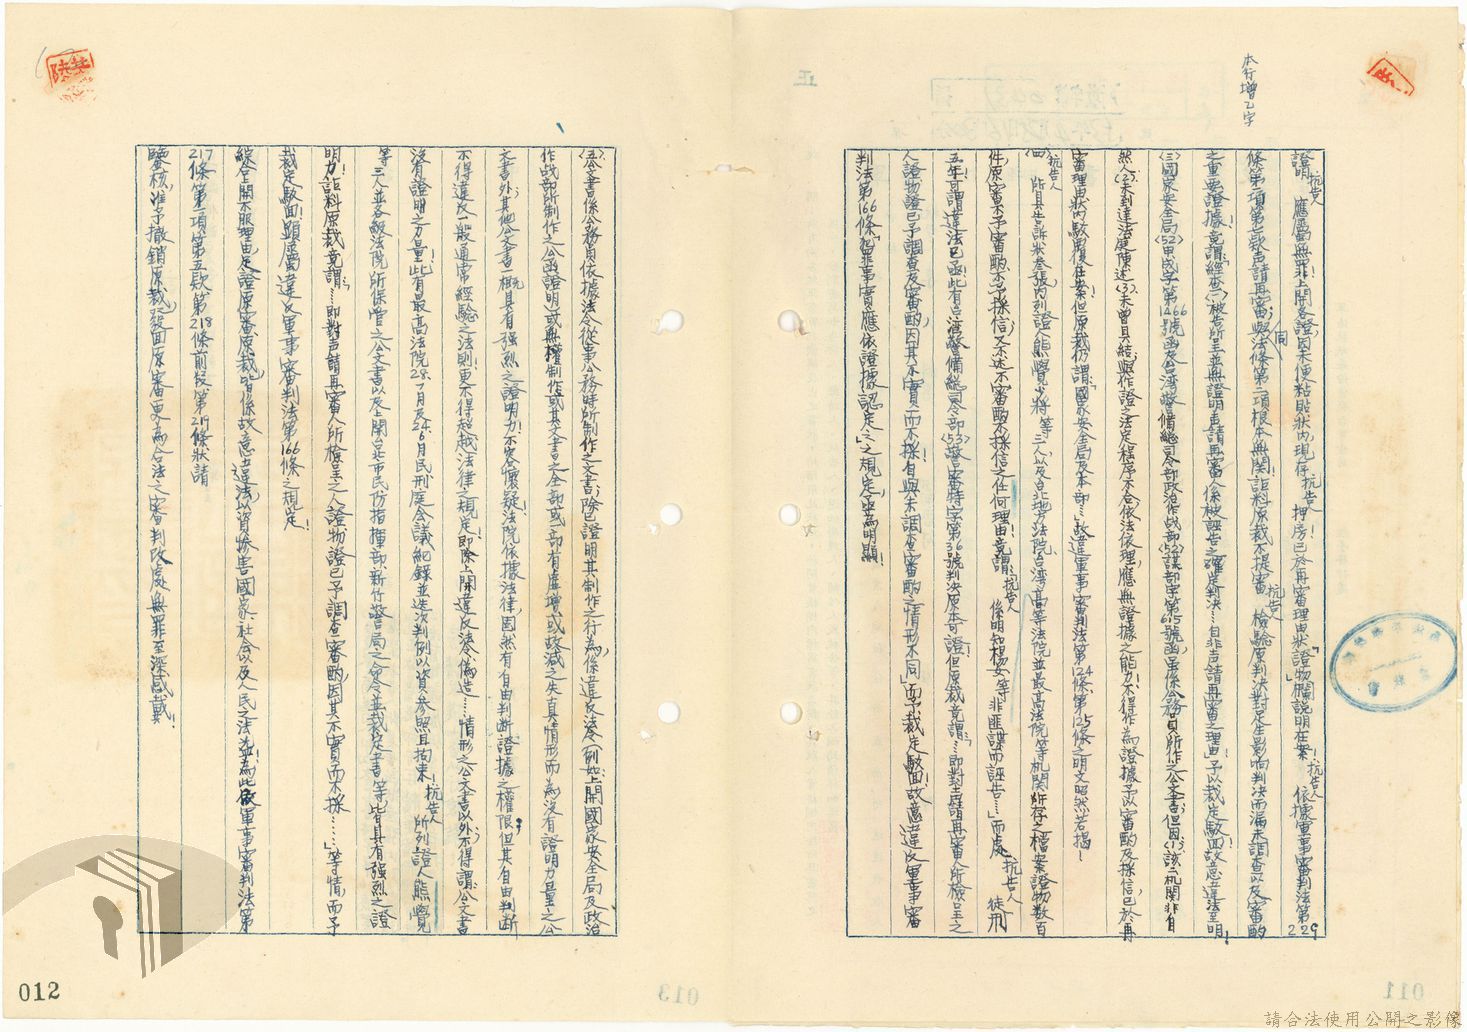 本行增乙字
證 抗告人 應屬無罪!上開各證,因未便粘貼狀內,現存 抗告人 押房,已於再審理由狀「證物欄」說明在案! 抗告人 依據軍事審判法第229
條第一項第 款声請再審,與同法條第二項根本無關,詎料原裁不提審 抗告人 檢驗原判決對足生影响判決而漏未調查以及審酌
之重要證據,竟謂:「經查(一)被告所呈並無證明声請再審人係被誣告之確定判決…自非声請再審之理由」予以裁定駁回,故意違法至明!
(三)國家安全局(52)甲成字第1466號函及台湾警備總司令部政治作战部(52)謀部字第615號函,虽係公務員所作之公文書,但因(1)該二机関非自
然人(2)未到達法庭陳述(3)未曾具結,與作證之法定程序不合,依法依理,應無證據之能力,不得作為證據予以審酌及採信,已於再
審理由狀內駁覆在案!但原裁仍謂:「國家安全局及本部…」故違軍事審判法第124條、第125條之明文,昭然若揭!
(四)抗告人 所具告訴狀叁張,內列證人熊覺民將 等三人,以及台北地方法院、台湾高等法院並最高法院等机関所存之檔案證物數百
件,原審不予審酌,不予採信,又不述不審酌不採信之任何理由,竟謂:「抗告人 係明知楊安等 非匪諜而誣告……」而處 抗告人 徒刑
五年,可謂違法已函!此有台湾警備総司令部(53)警審特字第36號判决原本可證!但原裁竟謂:「…即對声請再審人所檢呈之
人證物證已予調查及審酌,因其不實而不採!自與未調查審酌之情形不同」而予裁定駁回,故意違反軍事審
判法第166條「犯罪事實應依證據認定之」之規定,至為明顯!
(五)公文書係公務員依據法令從事公務時所制作之文書,除已證明其制作之行為,係違反法令(例如:上開國家安全局及政治
作战部所制作之公函證明)或無權制作或其文書之全部或一部有虛增或改減之失真情形而為沒有證明力量之公
文書外,其他公文書一概具有強烈之證明力,不容懷疑!法院依據法律,固然有自由判断證據之權限,但其自由判断
不得違反一般通常經驗之法則!更不得超越法律之規定!即除上開違反法令、偽造……情形之公文書以外,不得謂:公文書
沒有證明之力量!此有最高法院28.7月及24.6月民刑庭会議紀錄並迭次判例以資參照且拘束! 抗告人 所列證人熊覺
等三人並各級法院所保管之公文書以及上開台北市民防指揮部、新竹警局之命令並裁定書等,皆具有強烈之證
明力!詎料原裁竟謂:「……即對声請再審人所檢呈之人證物證已予調查審酌,因其不實而不採……」等情而予
裁定駁回,顯屬違反軍事審判法第166條之規定!
綜合上開不服理由,足證原審、原裁皆係故意違法,以資慘害國家、社会以及人民之法益!為此,依軍事審判法第
217條第一項第五欵、第218條前段、第219條狀請
鑒核,准予撤銷原裁,發回原審更為合法之審判,改處無罪,至深感戴!
012
013
011
請合法使用公開之影像